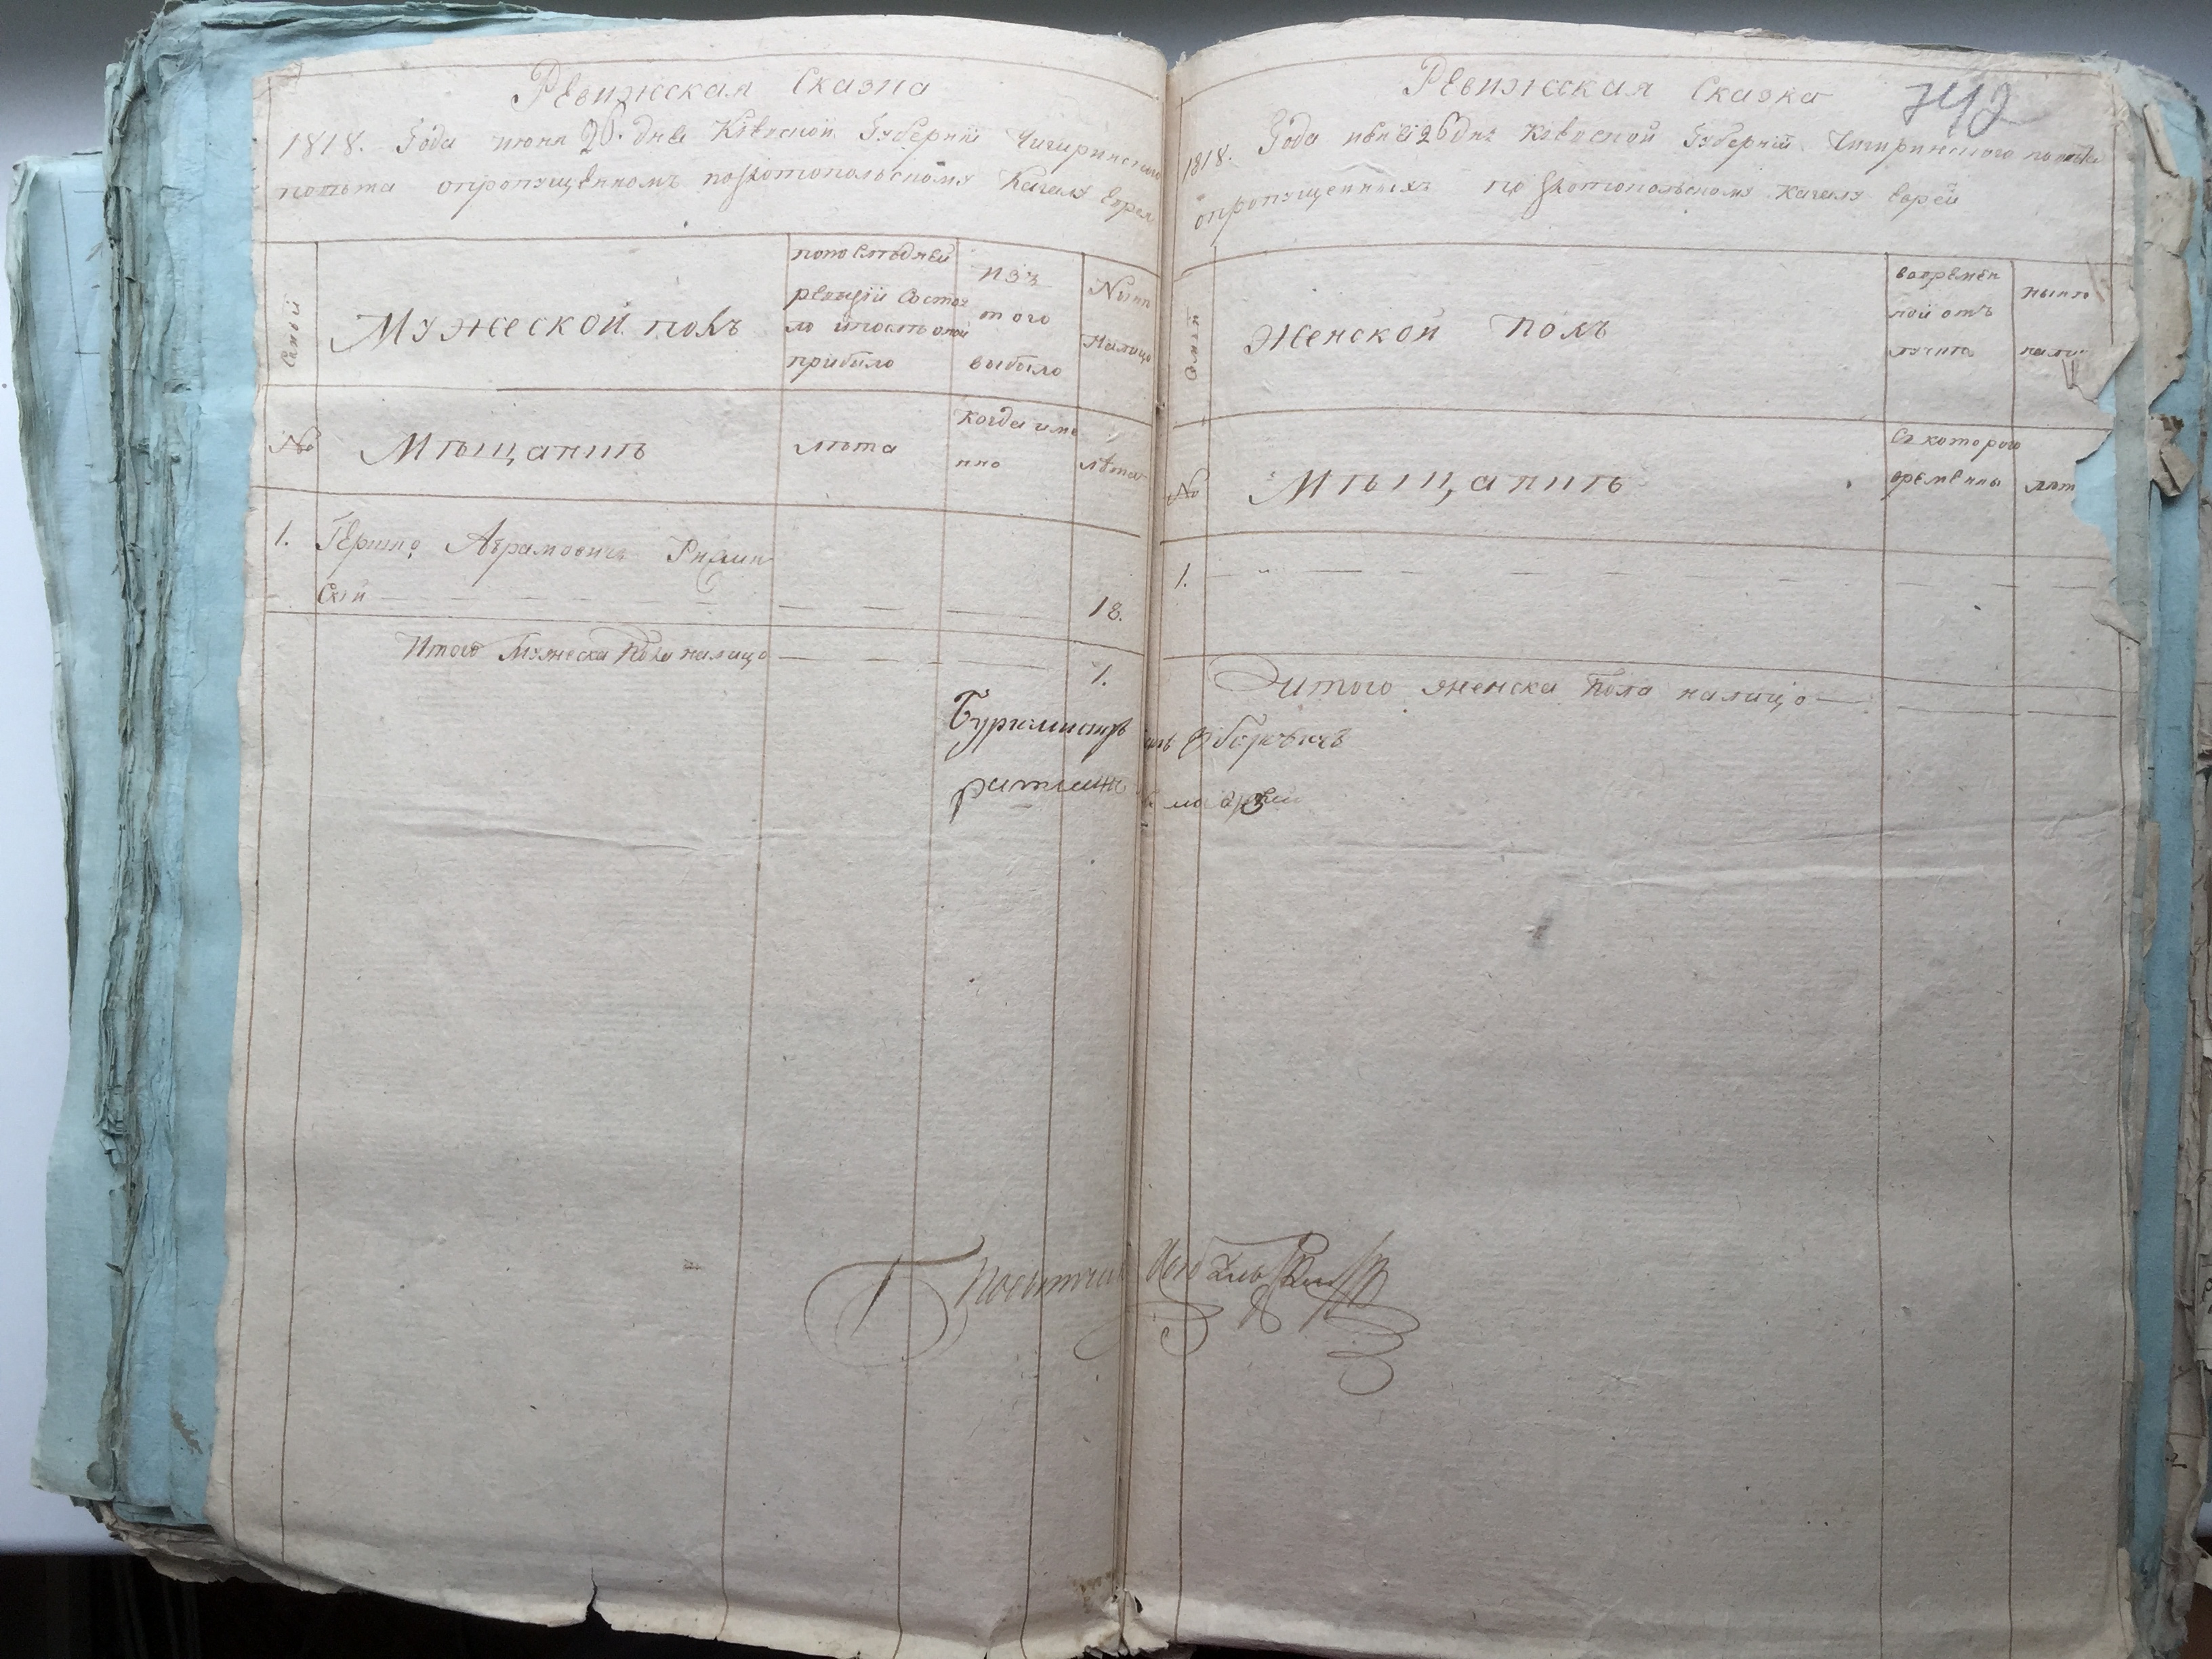 Ревижская Сказка
1818. Года июня 26. дня Кіевской Губерніи Чигиринского
повѣта опропущенномъ по Златопольскому Кагалу Еврея
Мужеской полъ
попослѣдней
ревизіи состоя
ло ипослѣ оной
прибыло
изъ
того
выбыло
Нынѣ
Налицо
№
Мѣщанинъ
лѣта
Когда име
нно
лѣта
1. Гершко Аврамовичъ
Скій
18.
Итого Мужеска Пола налицо
1.
Ревижская Сказка
742
1818. Года июня 26 дня Кіевской Губерніи Чигиринского повѣта
опропущенныхъ по Златопольскому Кагалу Еврей
Женской полъ
вовремен
ной отъ
лучкѣ
нынѣ
№
Мѣщанинъ
Съ которого
времянны
лѣт
1.
Итого женска Пола налицо
Бурмистръ
ратманъ